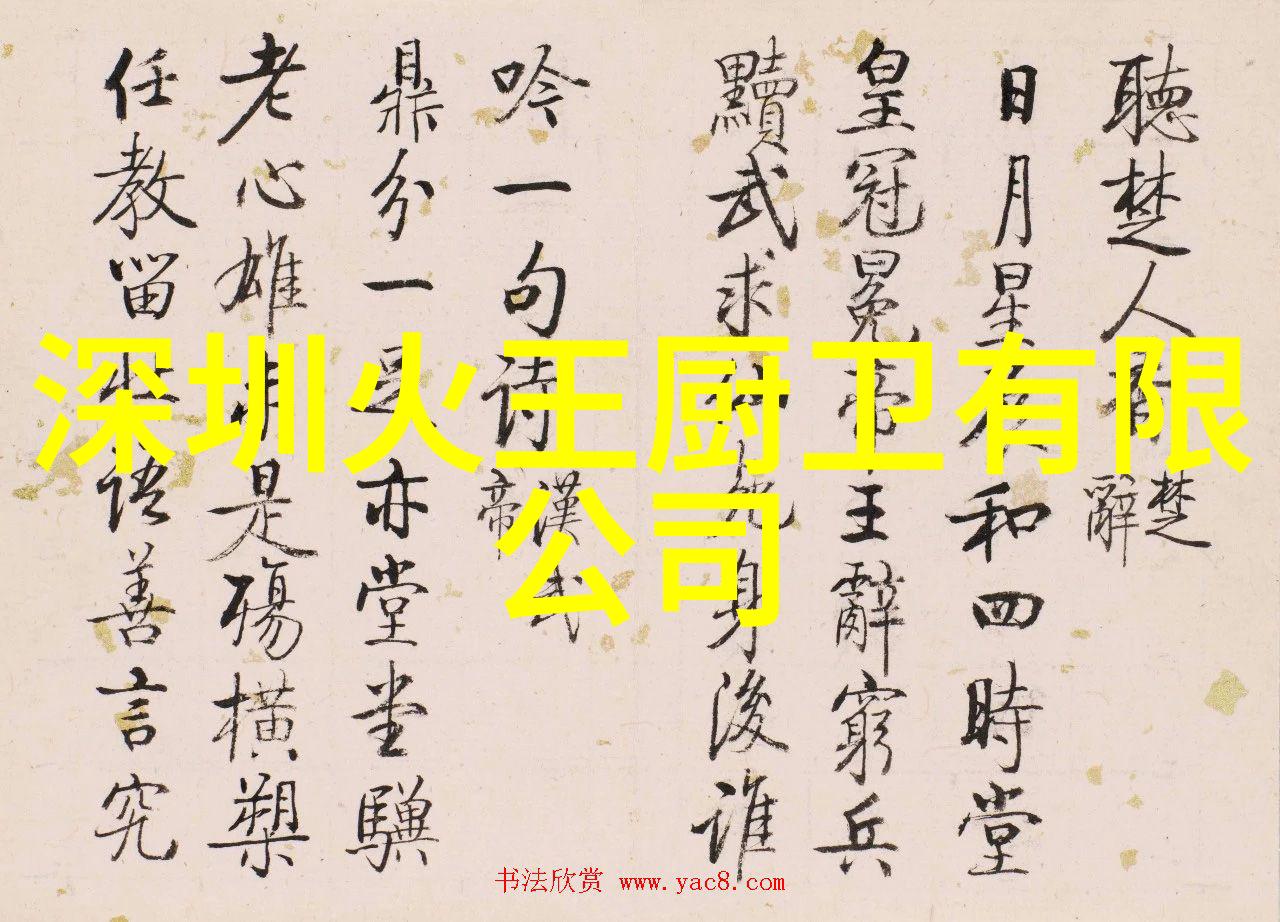 深圳火王厨卫有限
公司
聽楚人
楚辭
日月星辰和四時堂
皇冠冕帝王辭窮兵
黷武求身後誰
吟一句詩
漢武帝
鼎分一足亦堂堂驥
老心雄未是殤橫槊
任教留壯語善言究
书法欣赏 www.yac8.com